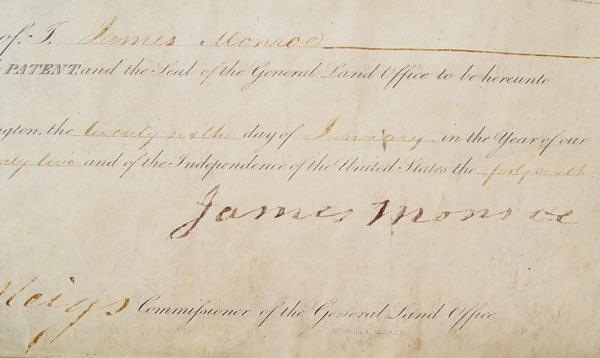 of. I, James Monroe
PATENT and the Seal of the General Land Office to be hereunto
ngton, the twenty sixth day of January in the Year of our
nty two and of the Independence of the United States the forty sixth
James Monroe
Meigs Commissioner of the General Land Office.